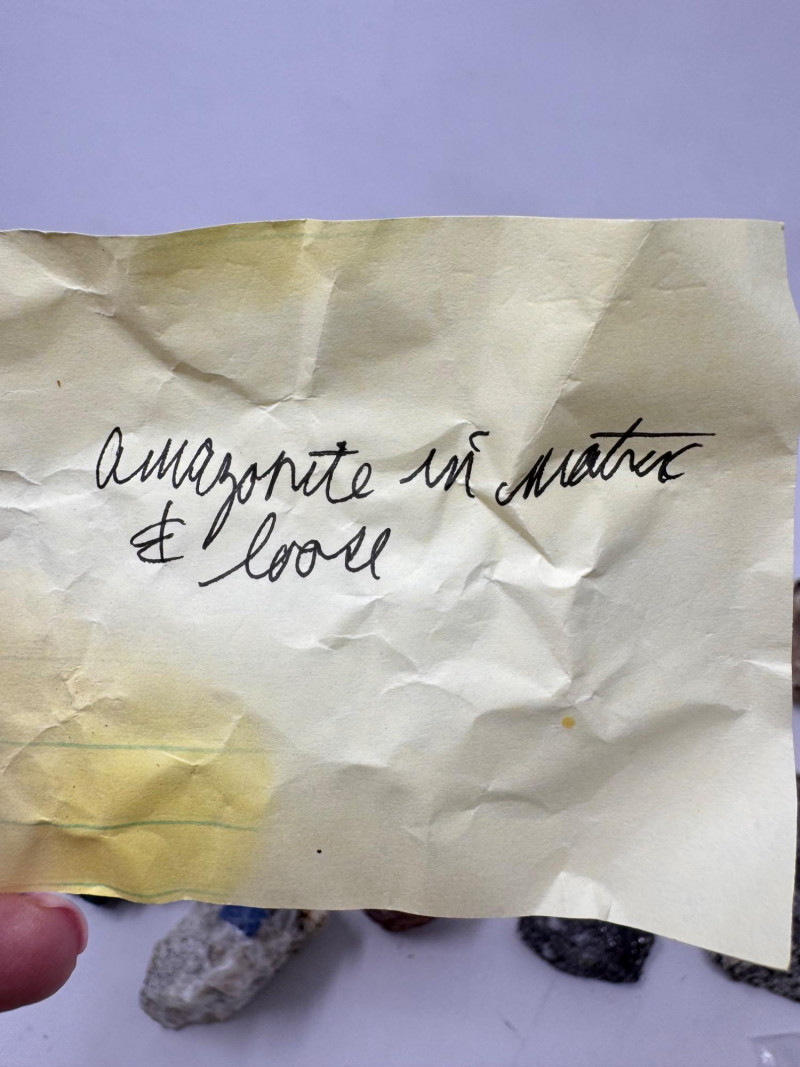 amazonite in matrix
& loose